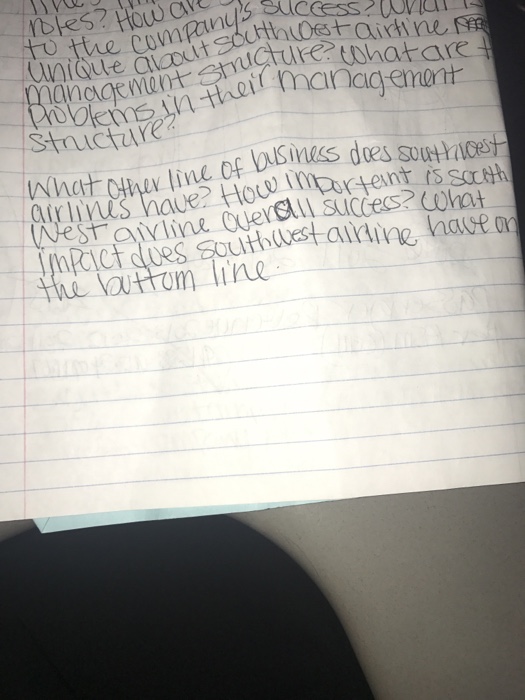 roles? How are
to the company's success? What is
unique about southwest airline
management structure? What are
problems in their management
structure?
What other line of business does southwest
airlines have? How importeint is south
West airline overall success? What
impact does southwest airline have on
the buttom line.